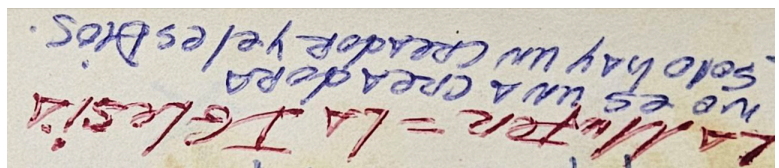 LA MUJER = LA IGLESIA
NO ES UNA CREADORA
SOLO HAY UN CREADOR y el es DIOS.